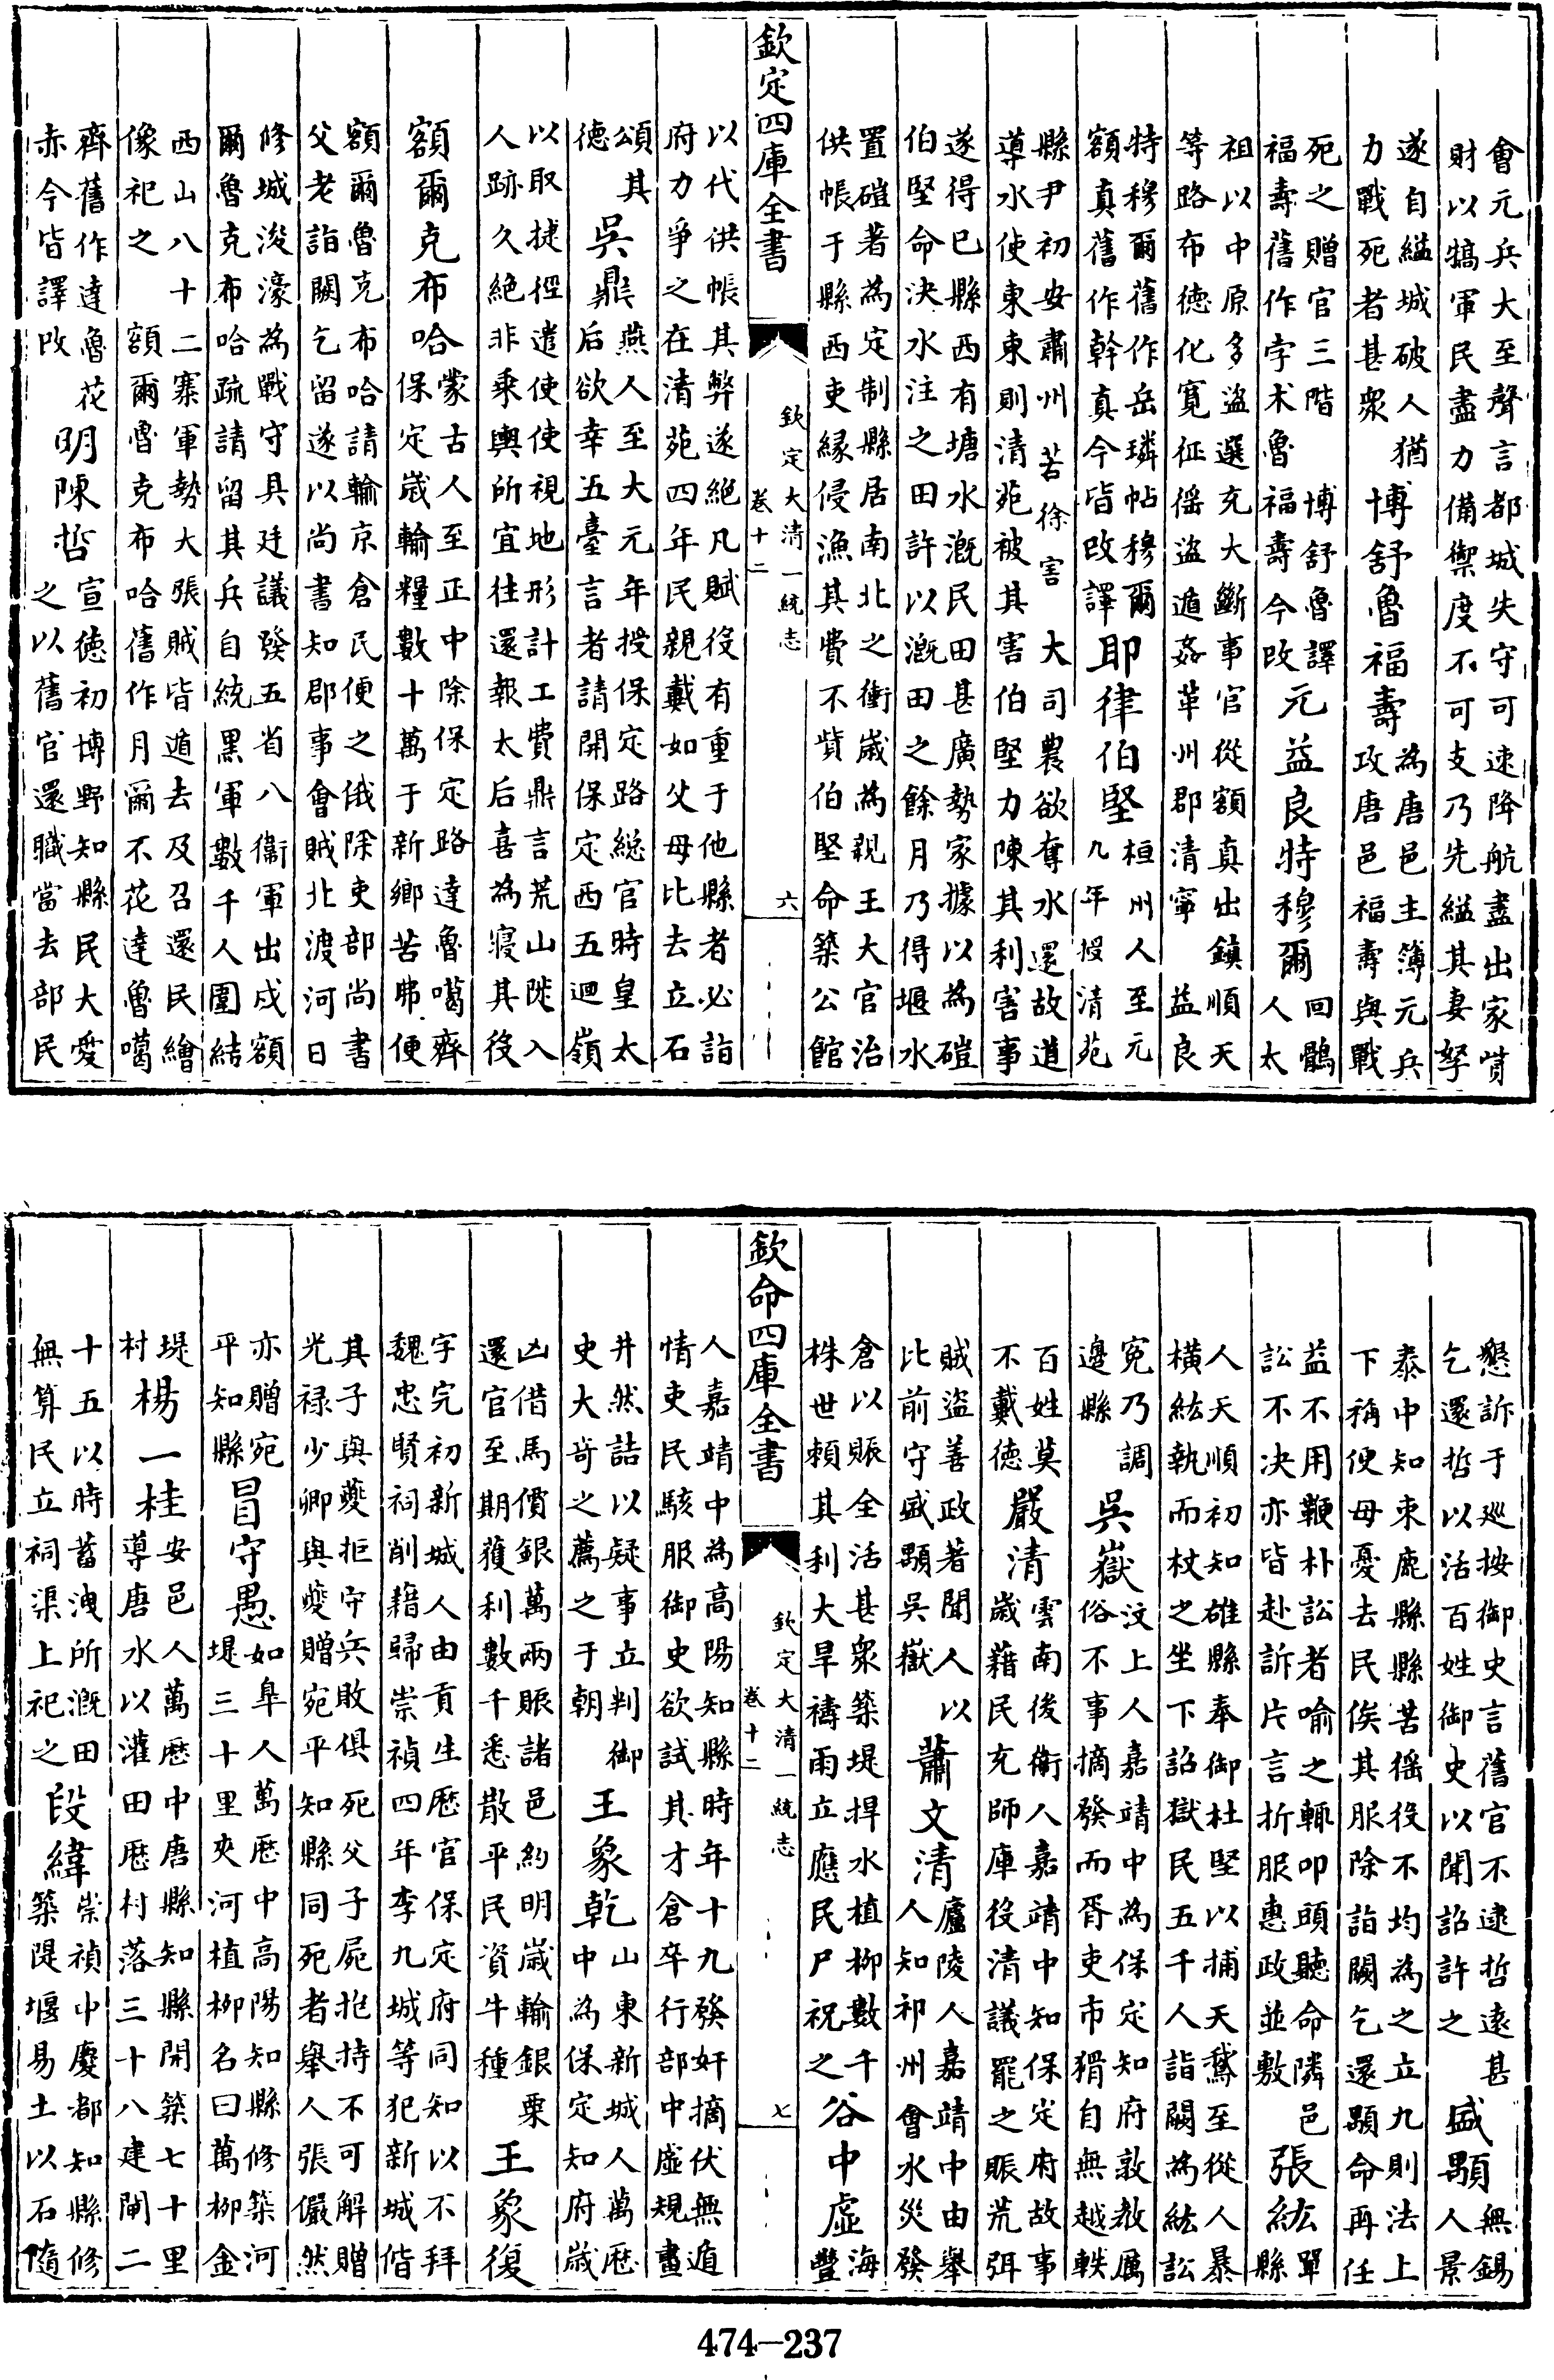 會元兵大至聲言都城失守可速降航盡出家貲
財以犒軍民盡力備禦度不可支乃先縊其妻孥
遂自縊城破人猶
力戰死者甚衆
博舒魯福壽
為唐邑主簿元兵
攻唐邑福壽與戰
死之贈官三階 博舒魯譯
福壽舊作字术魯福壽今改
元益良特穆爾
回鶻
人太
祖以中原多盜選充大斷事官從額真出鎮順天
等路布德化寬征徭盜遁姦革州郡清寧 益良
特穆爾舊作岳璘帖穆爾
額真舊作幹真今皆改譯
耶律伯堅
桓州人至元
九年授清苑
縣尹初安肅州苦徐害 大司農欲奪水還故道
導水使東東則清苑被其害伯堅力陳其利害事
遂得已縣西有塘水溉民田甚廣勢家據以為磑
伯堅命決水注之田許以溉田之餘月乃得堰水
置磑著為定制縣居南北之衝歲為親王大官治
供帳于縣西吏緣侵漁其費不貲伯堅命築公館
欽定四庫全書
欽定大清一統志
卷十二
六
以代供帳其弊遂絕凡賦役有重于他縣者必詣
府力爭之在清苑四年民親戴如父母比去立石
頌其
德
吳鼎
燕人至大元年授保定路總官時皇太
后欲幸五臺言者請開保定西五迴嶺
以取捷徑遣使使視地形計工費鼎言荒山陡入
人跡久絕非乘輿所宜往還報太后喜為寢其役
額爾克布哈
蒙古人至正中除保定路達魯噶齊
保定歲輸糧數十萬于新鄉苦弗便
額爾魯克布哈請輸京倉民便之俄除吏部尚書
父老詣闕乞留遂以尚書知郡事會賊北渡河日
修城浚濠為戰守具廷議發五省八衛軍出戍額
爾魯克布哈疏請留其兵自統黑軍數千人團結
西山八十二寨軍勢大張賊皆遁去及召還民繪
像祀之 額爾魯克布哈舊作月爾不花達魯噶
齊舊作達魯花
赤今皆譯改
明陳哲
宣德初博野知縣民大愛
之以舊官還職當去部民
懇訴于巡按御史言舊官不逮哲遠甚
乞還哲以活百姓御史以聞詔許之
盛顒
無錫
人景
泰中知束鹿縣縣苦徭役不均為之立九則法上
下稱便母憂去民俟其服除詣闕乞還顒命再任
益不用鞭朴訟者喻之輒叩頭聽命隣邑
訟不决亦皆赴訴片言折服惠政並敷
張紘
單
縣
人天順初知雄縣奉御杜堅以捕天鵝至從人暴
橫紘執而杖之坐下詔獄民五千人詣闕為紘訟
寃乃調
邊縣
吳嶽
汶上人嘉靖中為保定知府敦教厲
俗不事摘發而胥吏市猾自無越軼
百姓莫
不戴德
嚴清
雲南後衛人嘉靖中知保定府故事
歲藉民充師庫役清議罷之賑荒弭
賊盜善政著聞人以
比前守盛顒吳嶽
蕭文清
廬陵人嘉靖中由舉
人知祁州會水災發
倉以賑全活甚衆築堤捍水植柳數千
株世賴其利大旱禱雨立應民尸祝之
谷中虛
海
豐
欽命四庫全書
欽定大清一統志
卷十二
七
人嘉靖中為高陽知縣時年十九發奸摘伏無遁
情吏民駭服御史欲試其才倉卒行部中虛規畫
井然詰以疑事立判御
史大奇之薦之于朝
王象乾
山東新城人萬歷
中為保定知府歲
凶借馬價銀萬兩賑諸邑約明歲輸銀粟
還官至期獲利數千悉散平民資牛種
王象復
字完初新城人由貢生歷官保定府同知以不拜
魏忠賢祠削籍歸崇禎四年李九城等犯新城偕
其子與夔拒守兵敗俱死父子屍抱持不可解贈
光祿少卿與夔贈宛平知縣同死者舉人張儼然
亦贈宛
平知縣
冒守愚
如皋人萬歷中高陽知縣修築河
堤三十里夾河植柳名曰萬柳金
堤
村
楊一桂
安邑人萬歷中唐縣知縣開築七十里
導唐水以灌田歷村落三十八建閘二
十五以時蓄洩所溉田
無算民立祠渠上祀之
段緯
崇禎中慶都知縣修
築隄堰易土以石隨
474-237